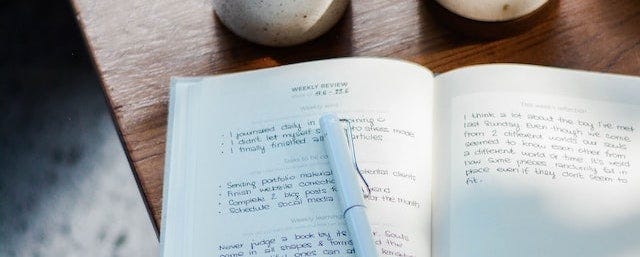 WEEKLY REVIEW
17.6 - 23.6
Weekly wins
• I journaled daily in morning
• I didn't let myself to stress mode
• I finally finished all articles
Tasks to be
• Sending portfolio material potential clients
• Finish website corrections
• Complete 2 blog posts
• Schedule social media for the month
Weekly learning
Never judge a book by its cover. Souls
come in all shapes & forms
ones can
This week's reflection
I think a lot about the boy I've met
last Sunday. Even though we come
from 2 different worlds our souls
seemed to know each other from
a different world or time. It's weird
how some pieces randomly fall in
place even if they don't seem to
fit.